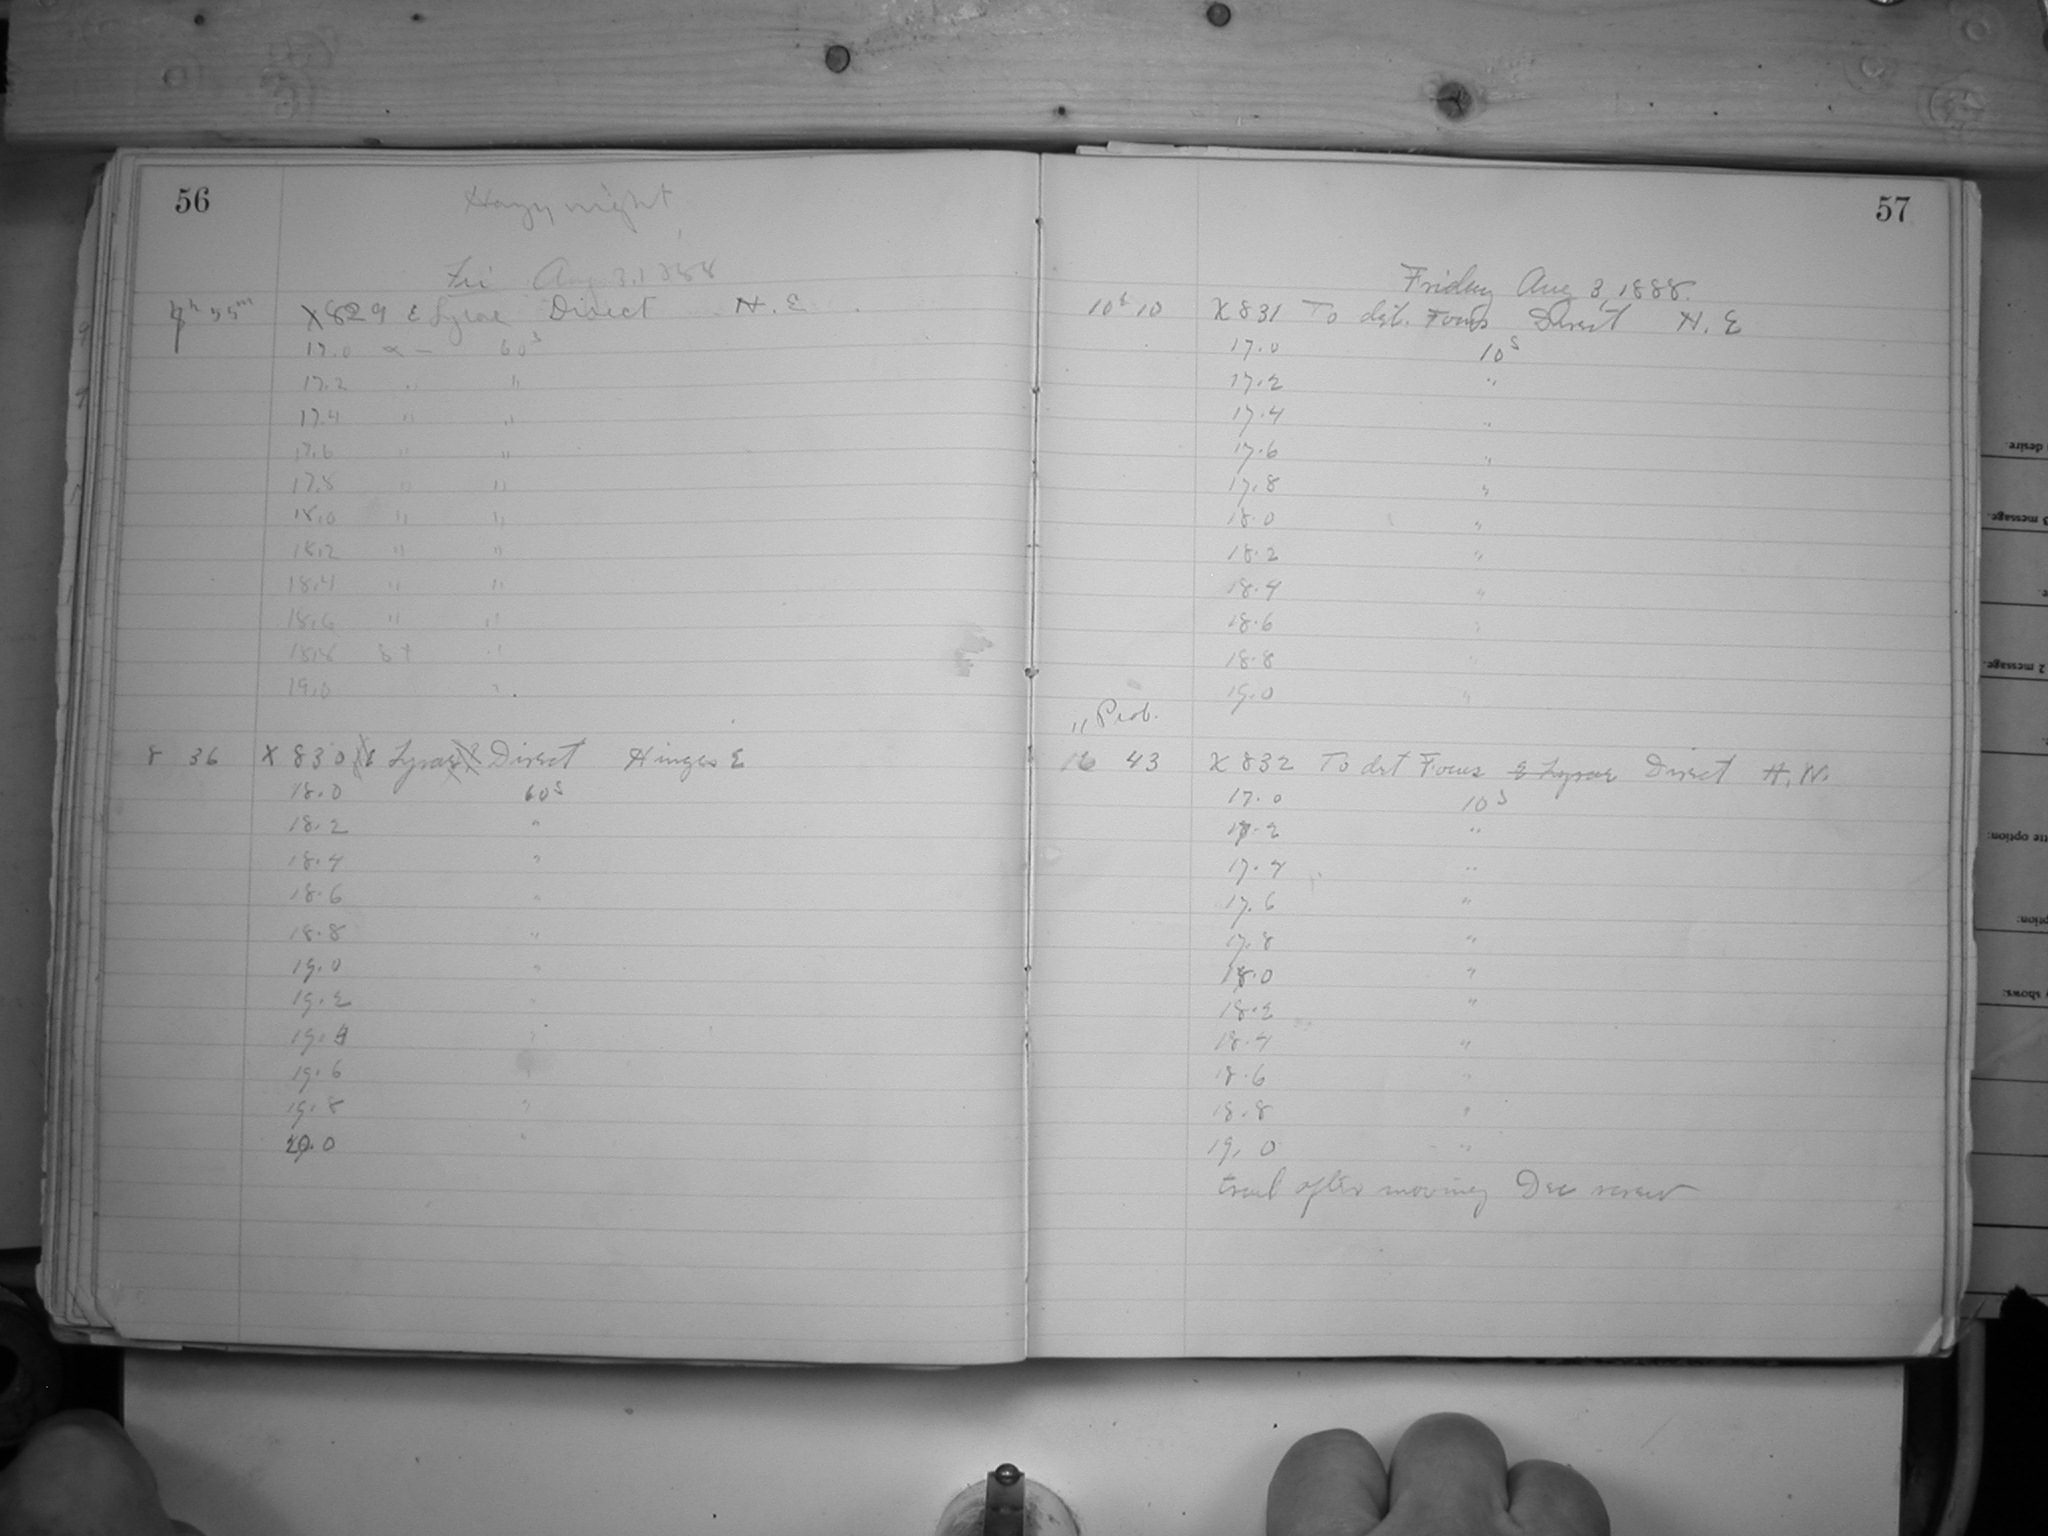 56
Hazy night
Fri Aug 3, 1888
7h 55m X829 ε Lyrae Direct H. E.
17.0 α — 60s
17.2 " "
17.4 " "
17.6 " "
17.8 " "
18.0 " "
18.2 " "
18.4 " "
18.6 " "
18.8 8+ "
19.0 "
8 36 X 830 ε Lyrae Direct Hinges E
18.0 60s
18.2 "
18.4 "
18.6 "
18.8 "
19.0 "
19.2 "
19.4 "
19.6 "
19.8 "
20.0 "
57
Friday Aug 3, 1888.
10h 10 X 831 To det. Focus Direct H. E
17.0 10s
17.2 "
17.4 "
17.6 "
17.8 "
18.0 "
18.2 "
18.4 "
18.6 "
18.8 "
19.0 "
11 Prob.
10 43 X 832 To det Focus ε Lyrae Direct H. W.
17.0 10s
17.2 "
17.4 "
17.6 "
17.8 "
18.0 "
18.2 "
18.4 "
18.6 "
18.8 "
19.0 "
trail after moving Dec screw
desire.
3 message.
2 message.
option:
ption:
shows: